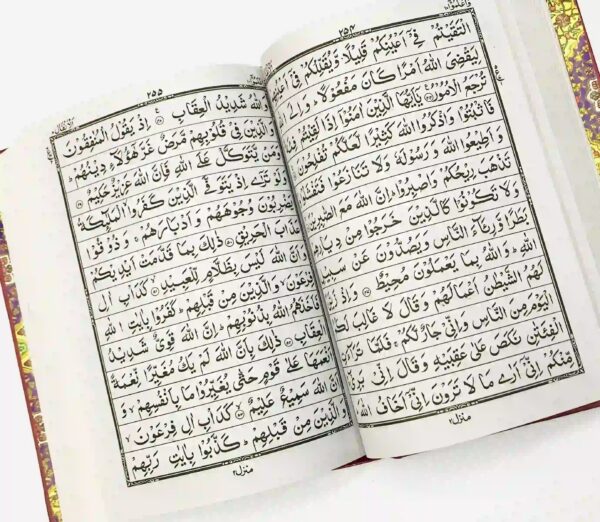 واعلموا
٢٥٤
الْتَقَيْتُمْ فِىْٓ اَعْيُنِكُمْ قَلِيْلًا وَّيُقَلِّلُكُمْ فِىْٓ
لِيَقْضِىَ اللّٰهُ اَمْرًا كَانَ مَفْعُوْلًا ؕ
تُرْجَعُ الْاُمُوْرُ ﴿۴۴﴾ يٰۤاَيُّهَا الَّذِيْنَ اٰمَنُوْۤا اِذَا لَقِيْتُمْ
فَاثْبُتُوْا وَاذْكُرُوا اللّٰهَ كَثِيْرًا لَّعَلَّكُمْ تُفْلِحُوْنَ
وَاَطِيْعُوا اللّٰهَ وَرَسُوْلَهٗ وَلَا تَنَازَعُوْا
وَتَذْهَبَ رِيْحُكُمْ وَاصْبِرُوْا ؕ اِنَّ اللّٰهَ مَعَ الصّٰبِرِيْنَ
وَلَا تَكُوْنُوْا كَالَّذِيْنَ خَرَجُوْا مِنْ
بَطَرًا وَّرِئَآءَ النَّاسِ وَيَصُدُّوْنَ عَنْ
اللّٰهِ ؕ وَاللّٰهُ بِمَا يَعْمَلُوْنَ مُحِيْطٌ ﴿۴۷﴾ وَاِذْ
لَهُمُ الشَّيْطٰنُ اَعْمَالَهُمْ وَقَالَ لَا غَالِبَ
الْيَوْمَ مِنَ النَّاسِ وَاِنِّىْ جَارٌ لَّكُمْ ۚ فَلَمَّا
الْفِئَتٰنِ نَكَصَ عَلٰى عَقِبَيْهِ وَقَالَ اِنِّىْ
مِّنْكُمْ اِنِّىْۤ اَرٰى مَا لَا تَرَوْنَ اِنِّىْۤ اَخَافُ اللّٰهَ
منزل٢
٢٥٥
وَاللّٰهُ شَدِيْدُ الْعِقَابِ ﴿۴۸﴾ اِذْ يَقُوْلُ الْمُنٰفِقُوْنَ
وَالَّذِيْنَ فِىْ قُلُوْبِهِمْ مَّرَضٌ غَرَّ هٰٓؤُلَآءِ دِيْنُهُمْ ؕ
وَمَنْ يَّتَوَكَّلْ عَلَى اللّٰهِ فَاِنَّ اللّٰهَ عَزِيْزٌ حَكِيْمٌ ﴿۴۹﴾
وَلَوْ تَرٰٓى اِذْ يَتَوَفَّى الَّذِيْنَ كَفَرُوا الْمَلٰٓئِكَةُ
يَضْرِبُوْنَ وُجُوْهَهُمْ وَاَدْبَارَهُمْ ۚ وَذُوْقُوْا
عَذَابَ الْحَرِيْقِ ﴿۵۰﴾ ذٰلِكَ بِمَا قَدَّمَتْ اَيْدِيْكُمْ
وَاَنَّ اللّٰهَ لَيْسَ بِظَلَّامٍ لِّلْعَبِيْدِ ﴿۵۱﴾ كَدَاْبِ اٰلِ
فِرْعَوْنَ ۙ وَالَّذِيْنَ مِنْ قَبْلِهِمْ ؕ كَفَرُوْا بِاٰيٰتِ اللّٰهِ
فَاَخَذَهُمُ اللّٰهُ بِذُنُوْبِهِمْ ؕ اِنَّ اللّٰهَ قَوِىٌّ شَدِيْدُ
الْعِقَابِ ﴿۵۲﴾ ذٰلِكَ بِاَنَّ اللّٰهَ لَمْ يَكُ مُغَيِّرًا نِّعْمَةً
اَنْعَمَهَا عَلٰى قَوْمٍ حَتّٰى يُغَيِّرُوْا مَا بِاَنْفُسِهِمْ ۙ وَ
اَنَّ اللّٰهَ سَمِيْعٌ عَلِيْمٌ ﴿۵۳﴾ كَدَاْبِ اٰلِ فِرْعَوْنَ ۙ
وَالَّذِيْنَ مِنْ قَبْلِهِمْ ؕ كَذَّبُوْا بِاٰيٰتِ رَبِّهِمْ
منزل٢